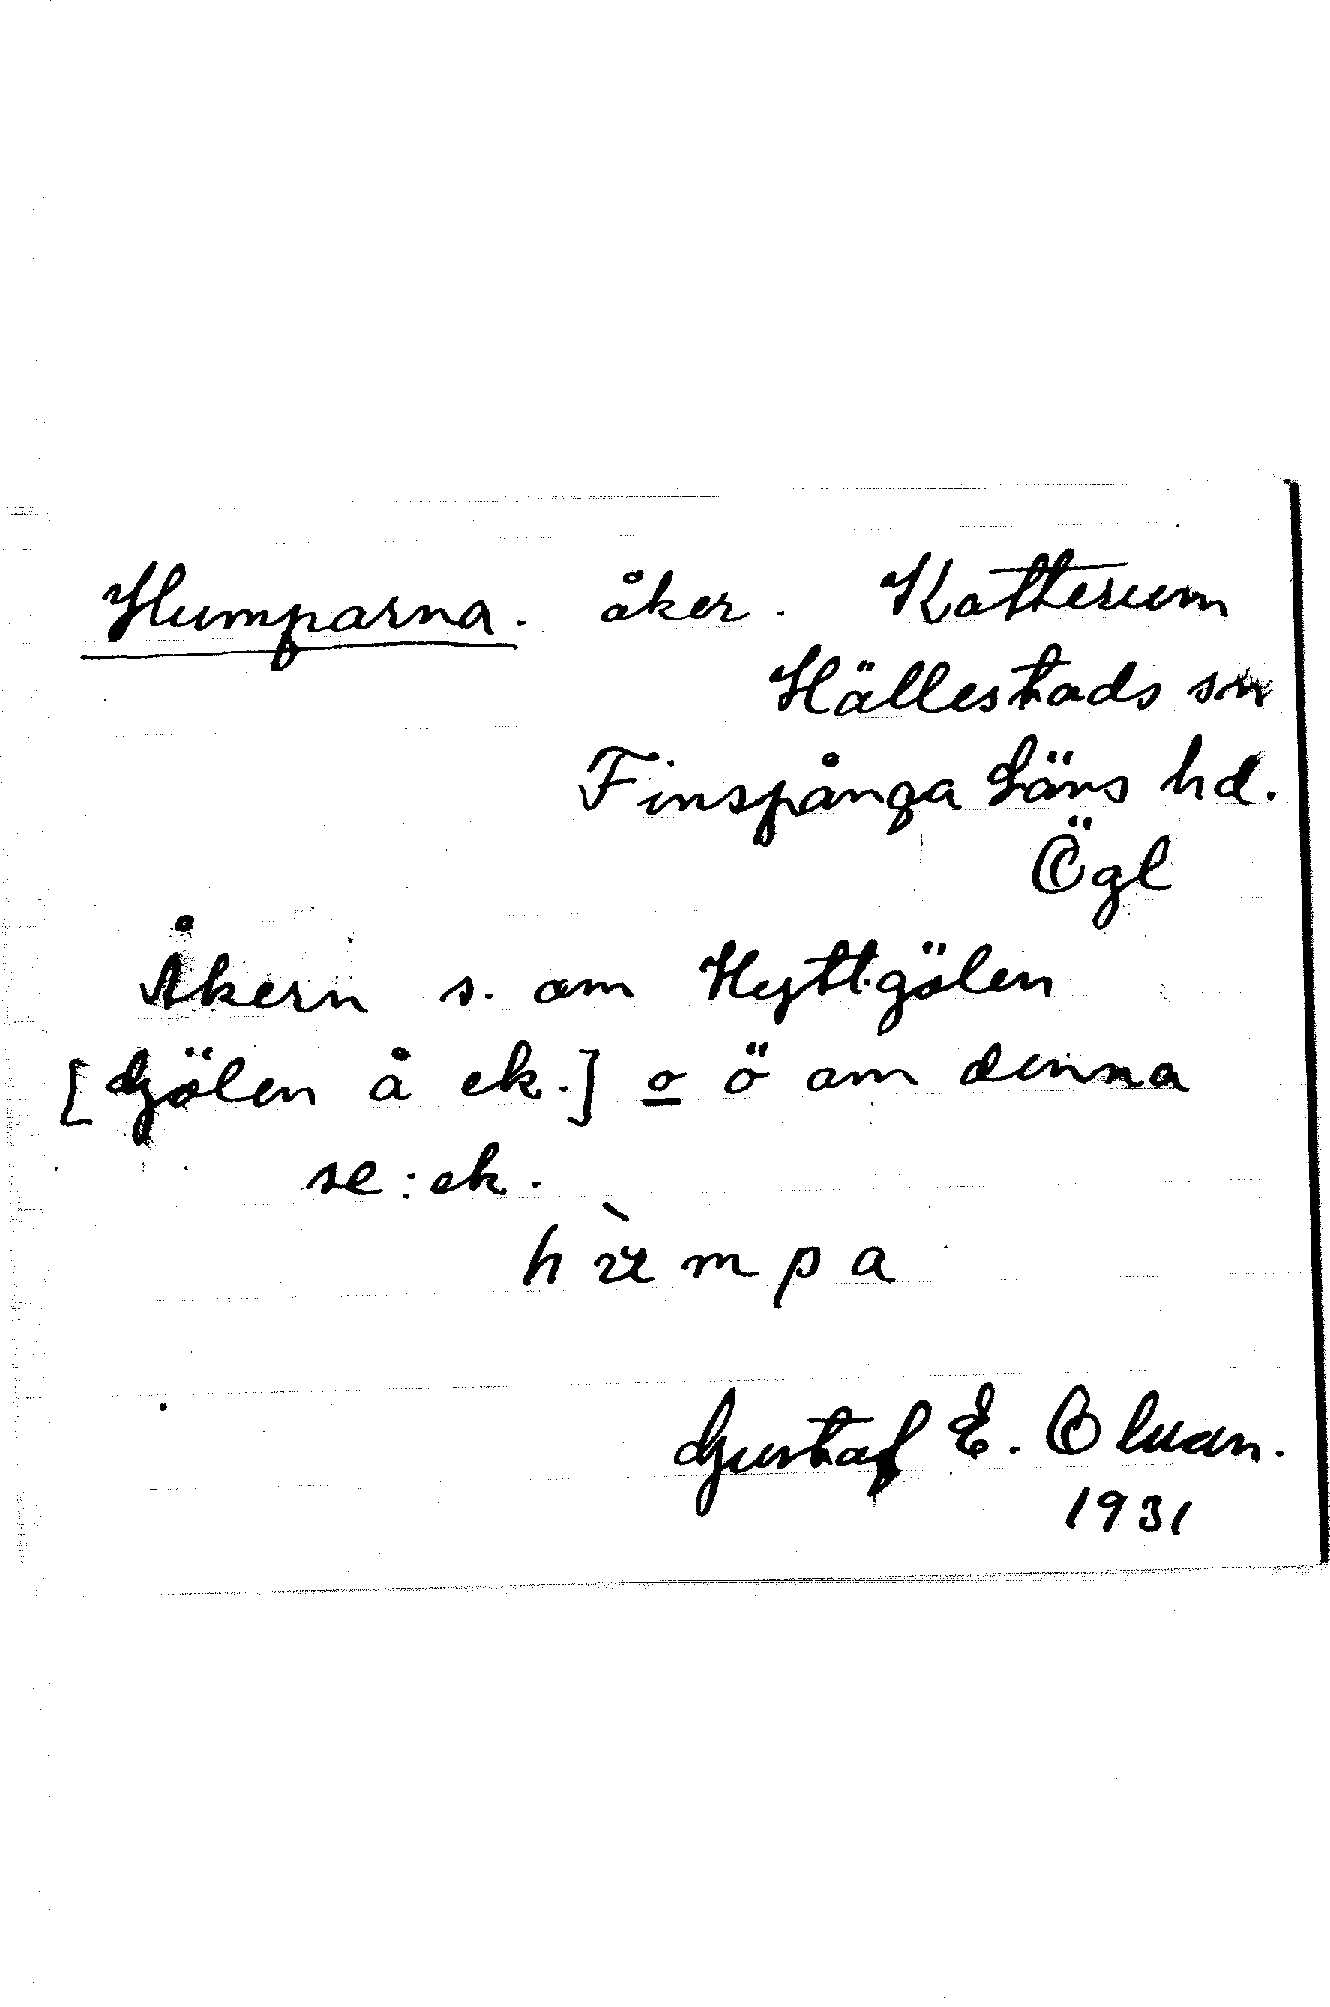 Humparna. åker. Katterum
Hällestads sn
Finspånga Läns hd.
Ögl
Åkern s. om Hyttgölen
[Gjölen å ek.] o ö om denna
se: ek.
hùmpa
Gustaf E.
1931